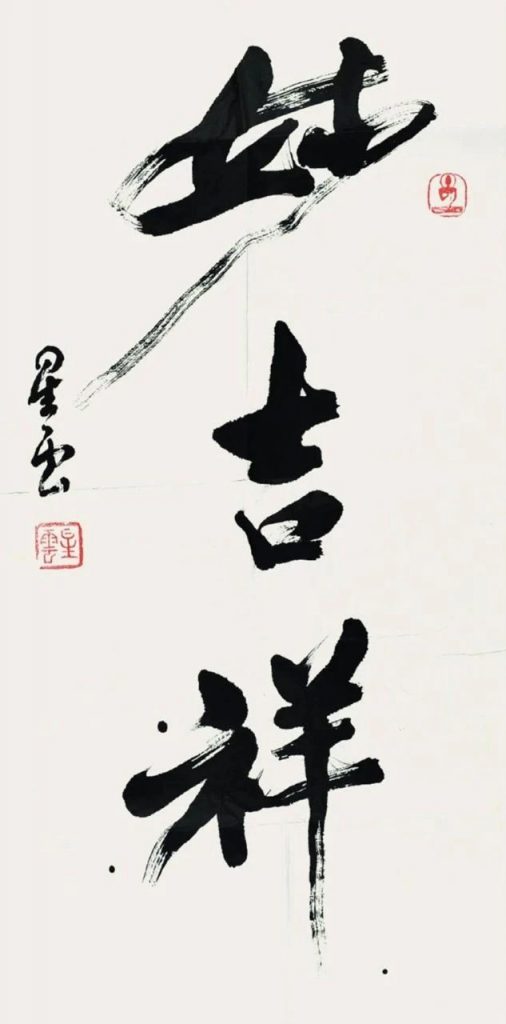 妙吉祥
星雲
星雲